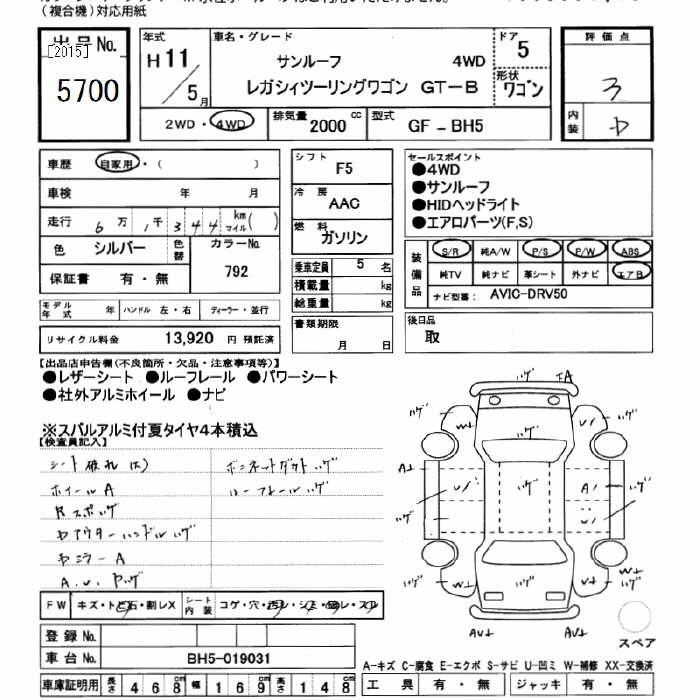 (複合機)対応用紙
出品No.
[2015]
5700
年式
H11/5月
車名・グレード
サンルーフ 4WD
レガシィツーリングワゴン GT-B
ドア 5
形状 ワゴン
2WD・4WD
排気量 2000 cc
型式 GF-BH5
評価点
3
内装
車歴 自家用・( )
車検 年 月
走行 6万1千344 km マイル( )
色 シルバー
色替
カラーNo. 792
保証書 有・無
モデル年式 年
ハンドル 左・右
ディーラー・並行
リサイクル料金 13,920 円 預託済
シフト F5
冷房 AAC
燃料 ガソリン
乗車定員 5 名
積載量 kg
総重量 kg
書類期限 月 日
セールスポイント
●4WD
●サンルーフ
●HIDヘッドライト
●エアロパーツ(F,S)
装備品
S/R 純A/W P/S P/W ABS
純TV 純ナビ 革シート 外ナビ エアB
ナビ型番: AVIC-DRV50
後日品
取
【出品店申告欄(不良箇所・欠品・注意事項等)】
●レザーシート ●ルーフレール ●パワーシート
●社外アルミホイール ●ナビ
※スバルアルミ付夏タイヤ4本積込
【検査員記入】
シート破れ(大)
ボンネットダクトハゲ
ホイールA
ルーフレールハゲ
Rスポハゲ
アウターハンドルハゲ
ミラーA
A.U.
FW キズ・トビ石・割レX
シート内装 コゲ・穴・汚レ・シミ・切レ・スレ
登録No.
車台No. BH5-019031
車庫証明用 長さ 468 幅 169 高さ 148
ハゲ
A
ハゲ
W±
U
ハゲ
A±
U
ハゲ
A
ハゲ
U
ハゲ
ハゲ
W±
ハゲ
W±
AU±
AU±
スペア
A-キズ C-腐食 E-エクボ S-サビ U-凹ミ W-補修 XX-交換済
工具 有・無 ジャッキ 有・無